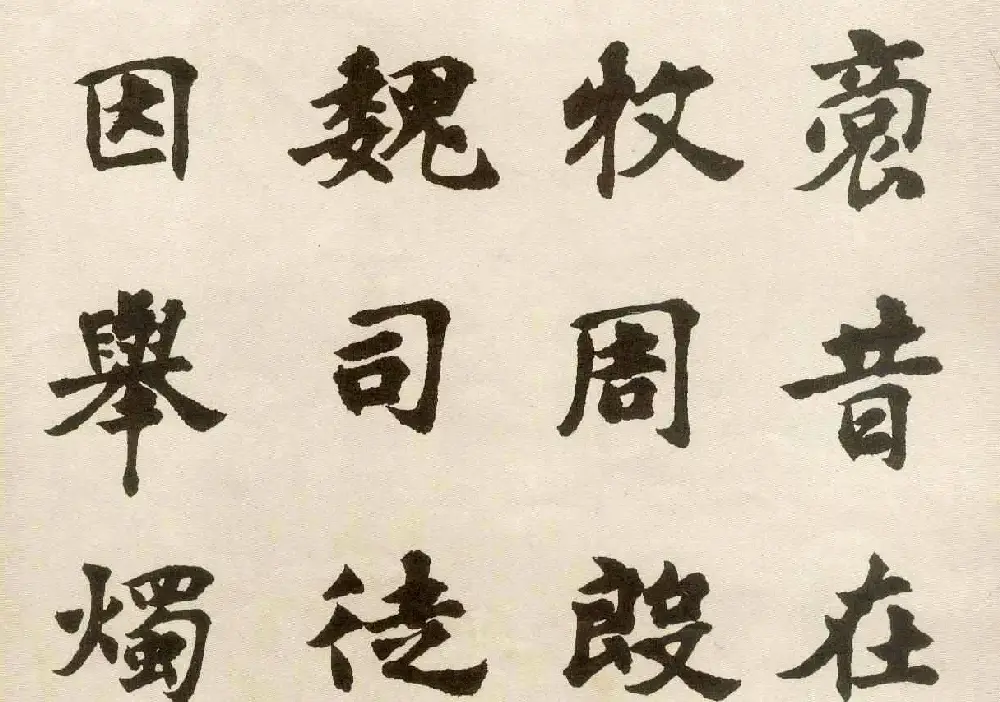 裔昔在
牧周殷
魏司徒
因舉燭